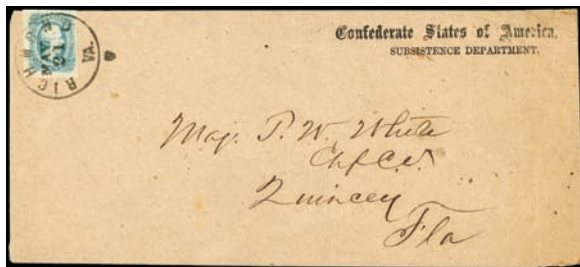 RICHMOND
VA.
MAY
21
Confederate States of America,
SUBSISTENCE DEPARTMENT.
Maj. P. W. White
Chf C.S.
Quincey
Fla